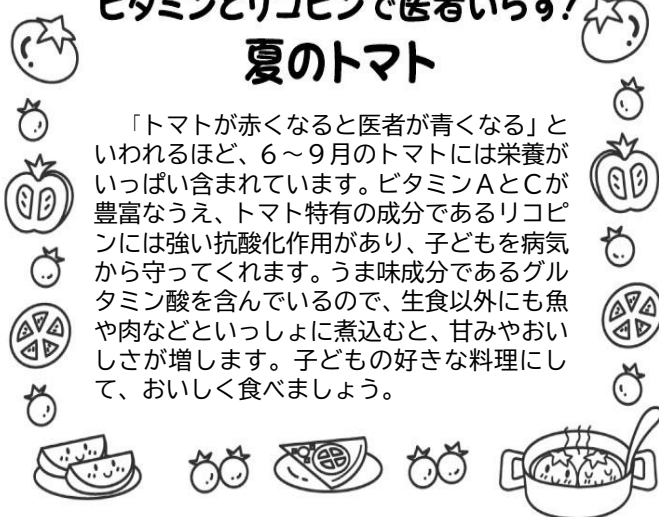 ビタミンとリコピンで医者いらず!
夏のトマト
「トマトが赤くなると医者が青くなる」と
いわれるほど、6～9月のトマトには栄養が
いっぱい含まれています。ビタミンAとCが
豊富なうえ、トマト特有の成分であるリコピ
ンには強い抗酸化作用があり、子どもを病気
から守ってくれます。うま味成分であるグル
タミン酸を含んでいるので、生食以外にも魚
や肉などといっしょに煮込むと、甘みやおい
しさが増します。子どもの好きな料理にし
て、おいしく食べましょう。